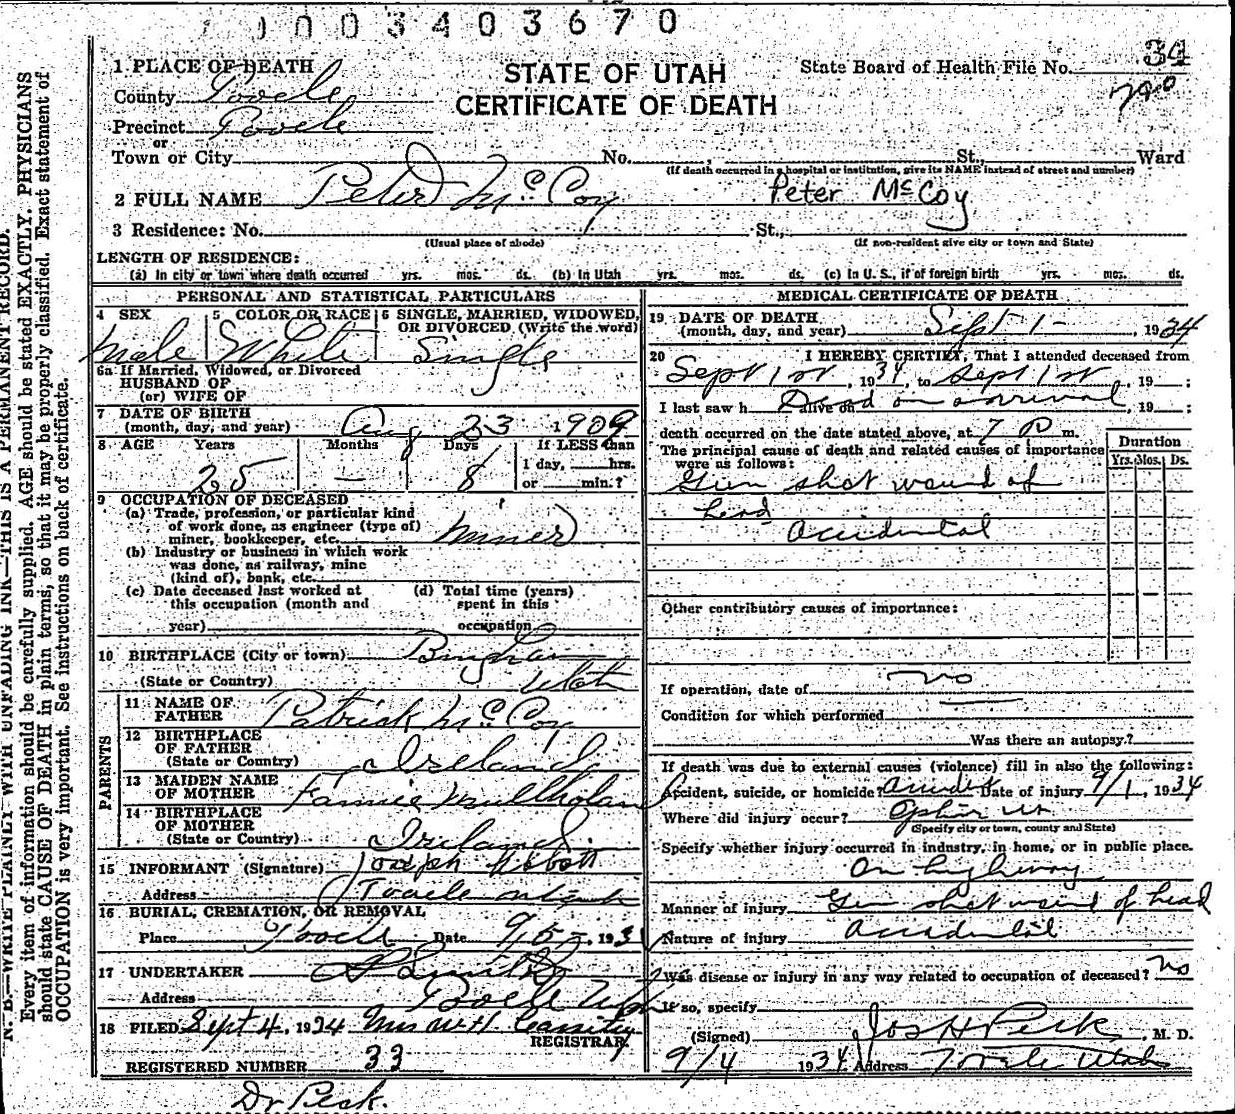 0003403670
34
790
STATE OF UTAH
CERTIFICATE OF DEATH
State Board of Health File No.
1 PLACE OF DEATH
County Tooele
Precinct Tooele
or
Town or City No. , St., Ward
(If death occurred in a hospital or institution, give its NAME instead of street and number)
2 FULL NAME Peter McCoy Peter McCoy
3 Residence: No. St.,
(Usual place of abode) (If non-resident give city or town and State)
LENGTH OF RESIDENCE:
(a) In city or town where death occurred yrs. mos. ds. (b) In Utah yrs. mos. ds. (c) In U. S., if of foreign birth yrs. mos. ds.
PERSONAL AND STATISTICAL PARTICULARS
4 SEX Male
5 COLOR OR RACE White
6 SINGLE, MARRIED, WIDOWED, OR DIVORCED (Write the word) Single
6a If Married, Widowed, or Divorced
HUSBAND OF
(or) WIFE OF
7 DATE OF BIRTH
(month, day, and year) Aug 23 1909
8 AGE Years Months Days If LESS than
25 — 8 1 day, hrs.
or min.?
9 OCCUPATION OF DECEASED
(a) Trade, profession, or particular kind
of work done, as engineer (type of)
miner, bookkeeper, etc. Miner
(b) Industry or business in which work
was done, as railway, mine
(kind of), bank, etc.
(c) Date deceased last worked at
this occupation (month and
year)
(d) Total time (years)
spent in this
occupation
10 BIRTHPLACE (City or town) Bingham
(State or Country) Utah
PARENTS
11 NAME OF
FATHER Patrick McCoy
12 BIRTHPLACE
OF FATHER
(State or Country) Ireland
13 MAIDEN NAME
OF MOTHER Fannie Mullholan
14 BIRTHPLACE
OF MOTHER
(State or Country) Ireland
15 INFORMANT (Signature) Joseph
Address Tooele Utah
16 BURIAL, CREMATION, OR REMOVAL
Place Tooele Date 9/5 - 193
17 UNDERTAKER
Address Tooele Utah
18 FILED Sept 4, 1934 Mrs W H Cassity
REGISTRAR
REGISTERED NUMBER 33
Dr Peck.
MEDICAL CERTIFICATE OF DEATH
19 DATE OF DEATH
(month, day, and year) Sept 1 - , 1934
20 I HEREBY CERTIFY, That I attended deceased from
Sept 1st, 1934, to Sept 1st, 19 ;
I last saw h alive on Dead on arrival, 19 ;
death occurred on the date stated above, at 7 P m.
The principal cause of death and related causes of importance
were as follows:
Duration
Yrs. Mos. Ds.
Gun shot wound of
head
Accidental
Other contributory causes of importance:
If operation, date of no
Condition for which performed
Was there an autopsy?
If death was due to external causes (violence) fill in also the following:
Accident, suicide, or homicide? Date of injury 9/1, 1934
Where did injury occur? Ophir Ut
(Specify city or town, county and State)
Specify whether injury occurred in industry, in home, or in public place.
On highway
Manner of injury Gun shot wound of head
Nature of injury Accidental
Was disease or injury in any way related to occupation of deceased? No
If so, specify
(Signed) Jos H Peck, M. D.
9/4 1934 Address Tooele Utah
N. B.—WRITE PLAINLY WITH UNFADING INK—THIS IS A PERMANENT RECORD.
Every item of information should be carefully supplied. AGE should be stated EXACTLY. PHYSICIANS
should state CAUSE OF DEATH in plain terms, so that it may be properly classified. Exact statement of
OCCUPATION is very important. See instructions on back of certificate.